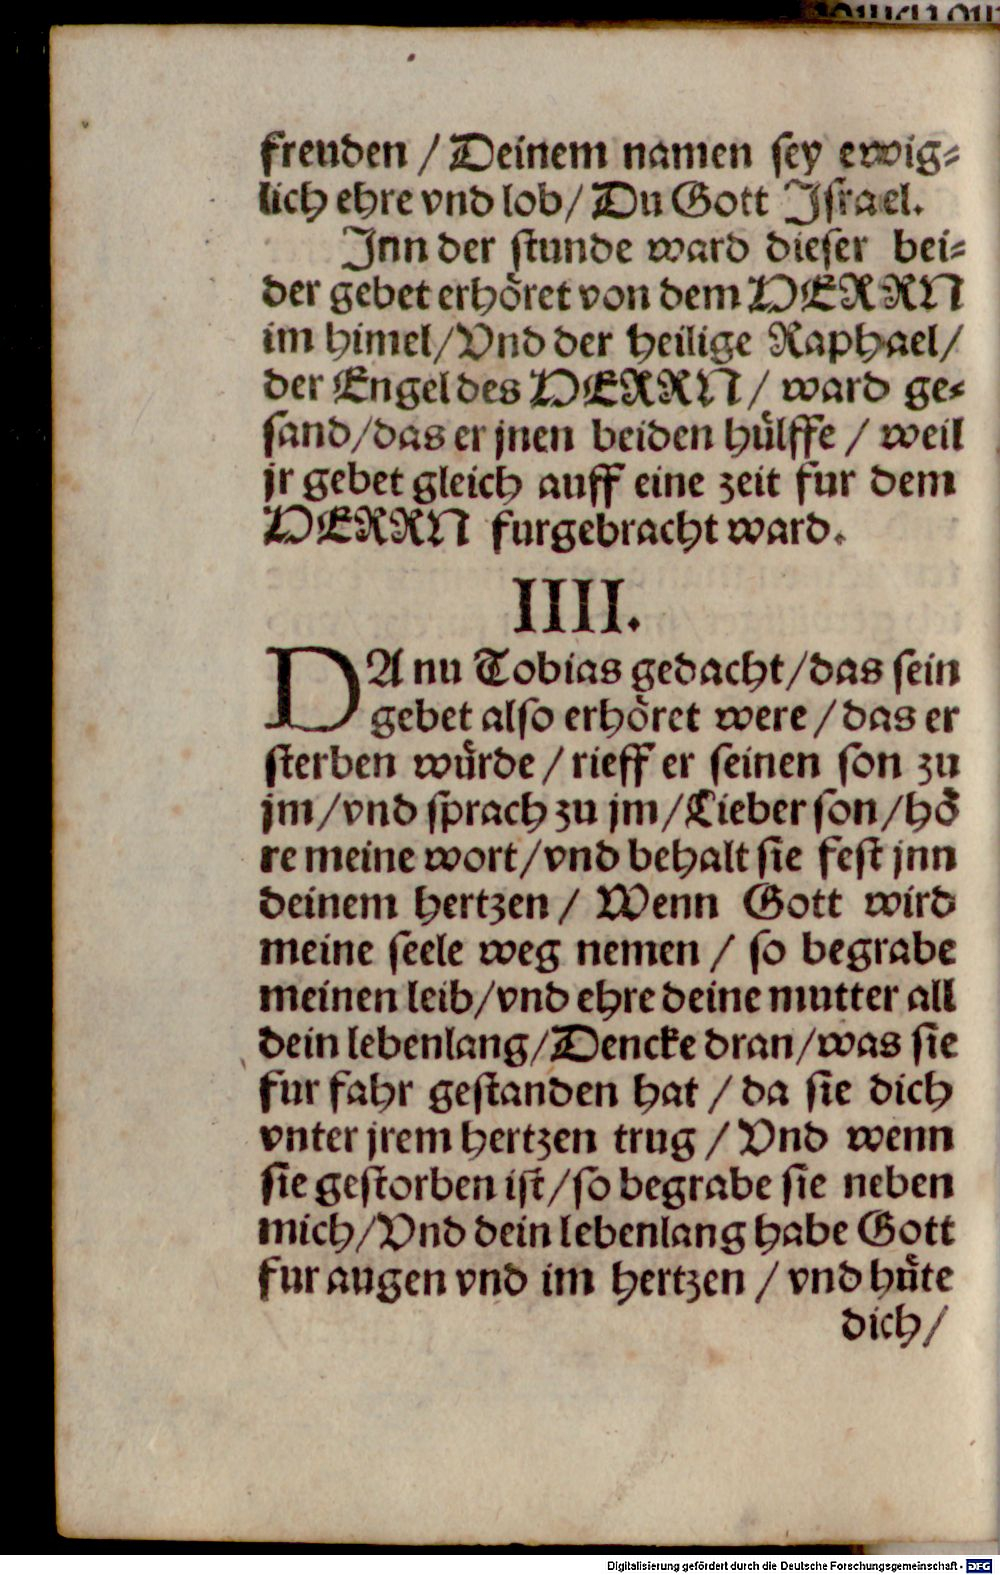 freuden / Deinem namen sey ewig⸗
lich ehre vnd lob/ Du Gott Jsrael.
Jnn der stunde ward dieser bei⸗
der gebet erhöret von dem HERRN
im himel/Vnd der heilige Raphael/
der Engel des HERRN/ ward ge⸗
sand/das er jnen beiden hülffe / weil
jr gebet gleich auff eine zeit fur dem
HERRN furgebracht ward.
IIII.
DA nu Tobias gedacht/das sein
gebet also erhöret were/das er
sterben würde/rieff er seinen son zu
jm/vnd sprach zu jm/Lieber son/hö
re meine wort/vnd behalt sie fest jnn
deinem hertzen/ Wenn Gott wird
meine seele weg nemen / so begrabe
meinen leib/vnd ehre deine mutter all
dein lebenlang/Dencke dran/was sie
fur fahr gestanden hat / da sie dich
vnter jrem hertzen trug / Vnd wenn
sie gestorben ist/so begrabe sie neben
mich/Vnd dein lebenlang habe Gott
fur augen vnd im hertzen / vnd hüte
dich/
Digitalisierung gefördert durch die Deutsche Forschungsgemeinschaft - DFG